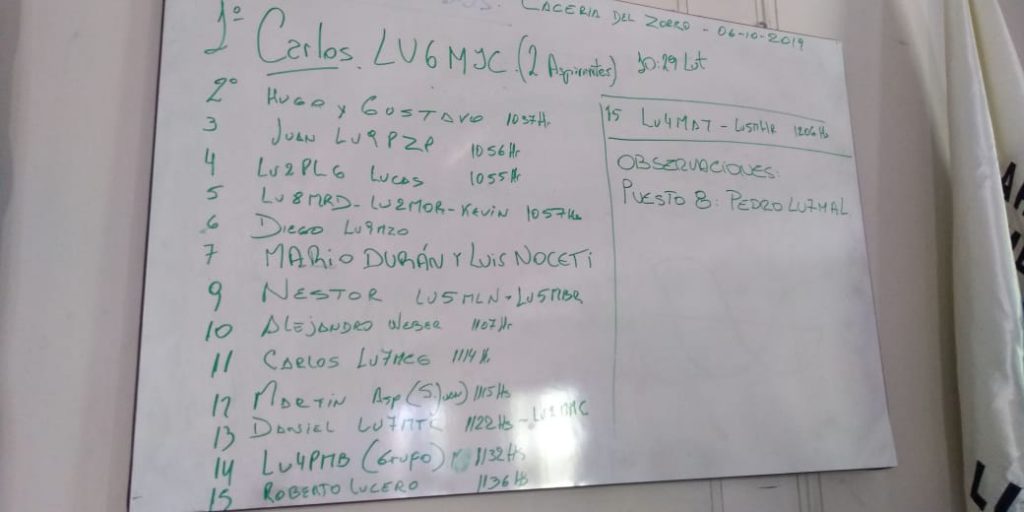 CACERIA DEL ZORRO - 06-10-2019
1º Carlos LU6MJC (2 Aspirantes) 10:29 Lut
2º HUGO y GUSTAVO 1037Hr
3 JUAN LU9PZP 1056Hr
4 LU2PLG LUCAS 1055Hr
5 LU8MRD-LU2MOR-KEVIN 1057Hs
6 DIEGO LU9MZO
7 MARIO DURÁN Y LUIS NOCETI
9 NESTOR LU5MLN - LU5MBR
10 ALEJANDRO WEBER 1107Hr
11 CARLOS 1114 Hs
12 MARTIN Asp (S. Juan) 1115Hs
13 DANIEL 1122Hs
14 LU4PMB (Grupo) 1132Hs
15 ROBERTO LUCERO 1136Hs
15 LU4MDT - 1206Hs
OBSERVACIONES:
PUESTO 8: PEDRO LU7MAL